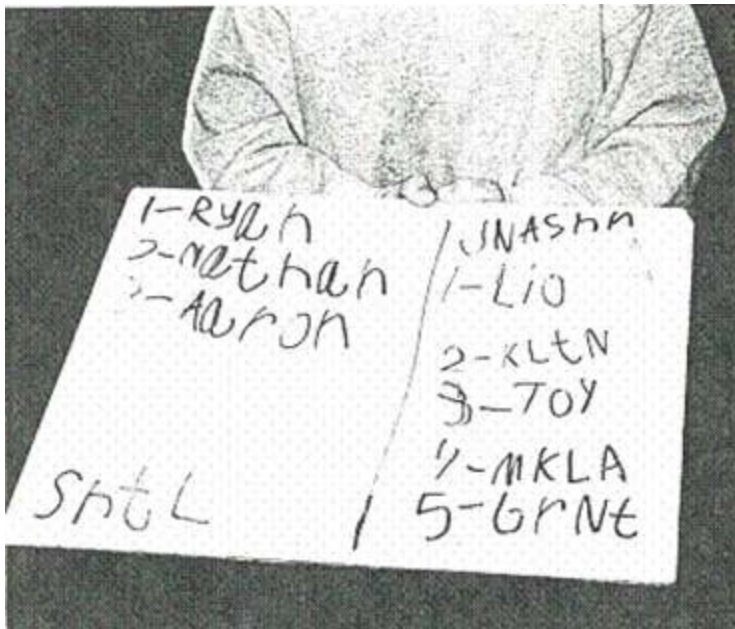 1-RYan
2-Nathan
3-Aaron
SntL
JNASnn
1-Lio
2-KLtN
3-TOY
4-MKLA
5-GrNt